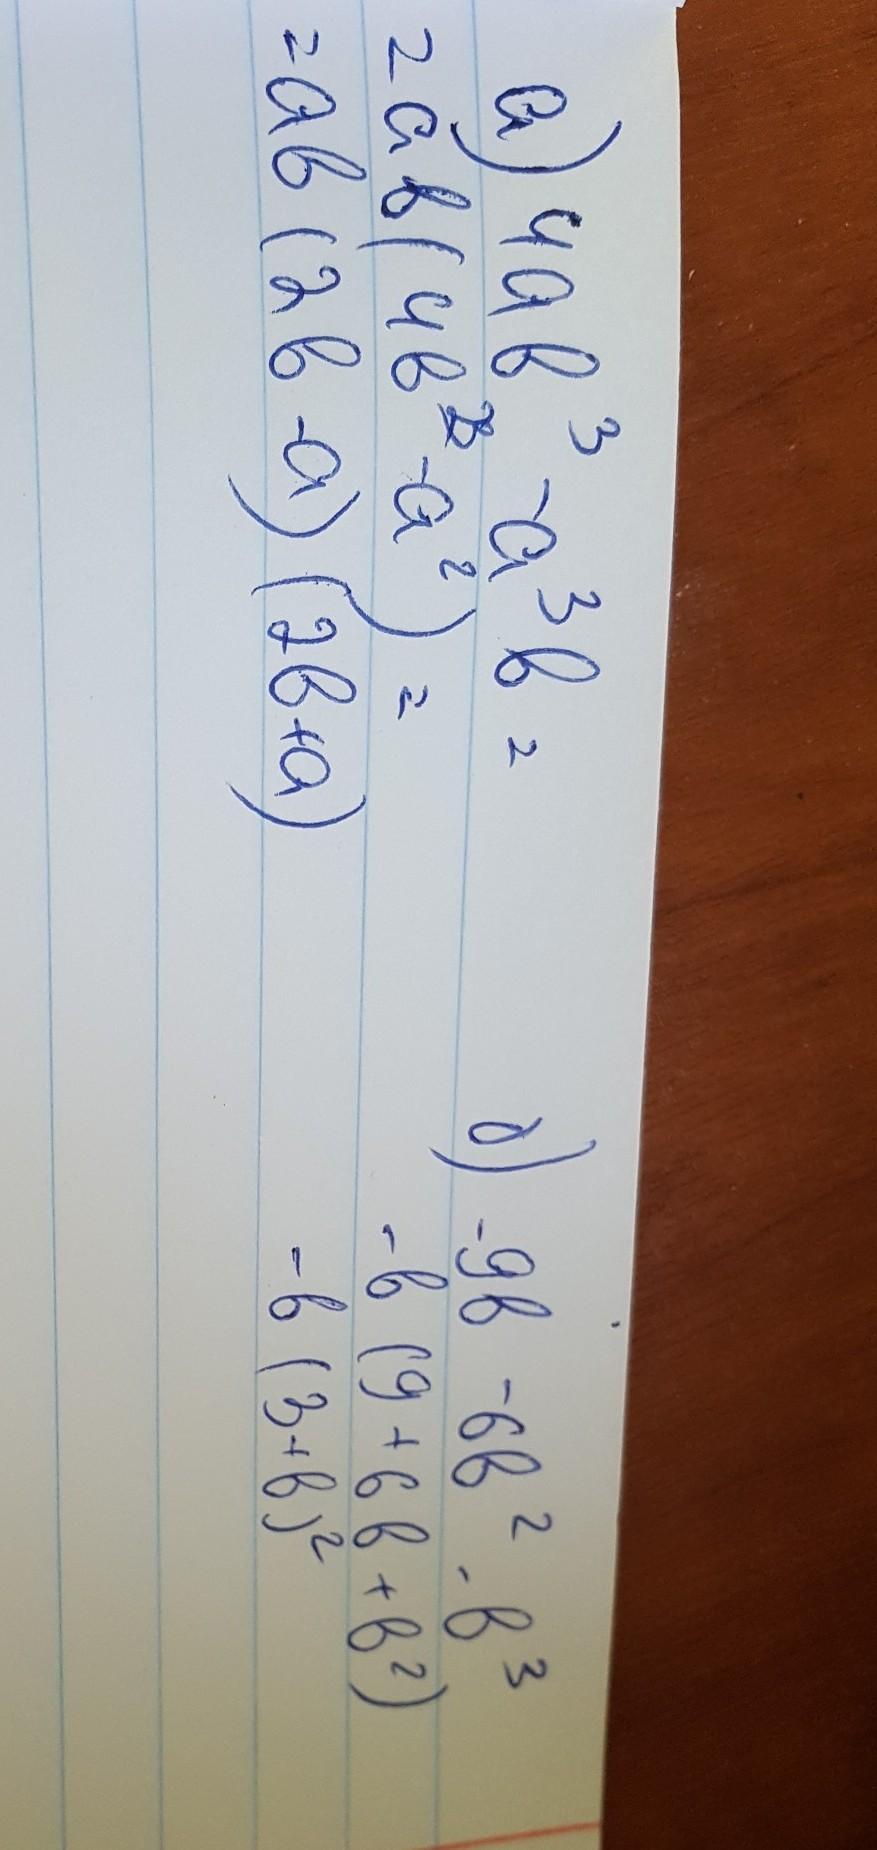 а) 4ab³ - a³b =
= ab(4b² - a²) =
= ab(2b - a)(2b + a)
б) -9b - 6b² - b³
-b(9 + 6b + b²)
-b(3 + b)²